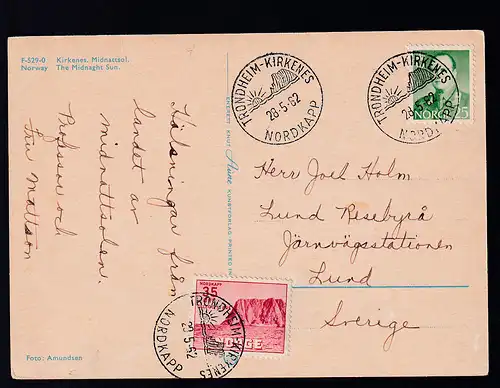 F-529-0 Kirkenes. Midnattsol.
Norway The Midnaght Sun.
Hälsningar från
landet av
midnattsolen.
Professor och
Fru Mattson
Foto: Amundsen
ENERETT KNUT Aune KUNSTFORLAG PRINTED IN
TRONDHEIM-KIRKENES
28-5-62
NORDKAPP
TRONDHEIM-KIRKENES
28-5-62
NORDKAPP
NORGE
Herr Joel Holm
Lund Resebyrå
Järnvägsstationen
Lund
Sverige
NORDKAPP
35
NORGE
TRONDHEIM-KIRKENES
28-5-62
NORDKAPP